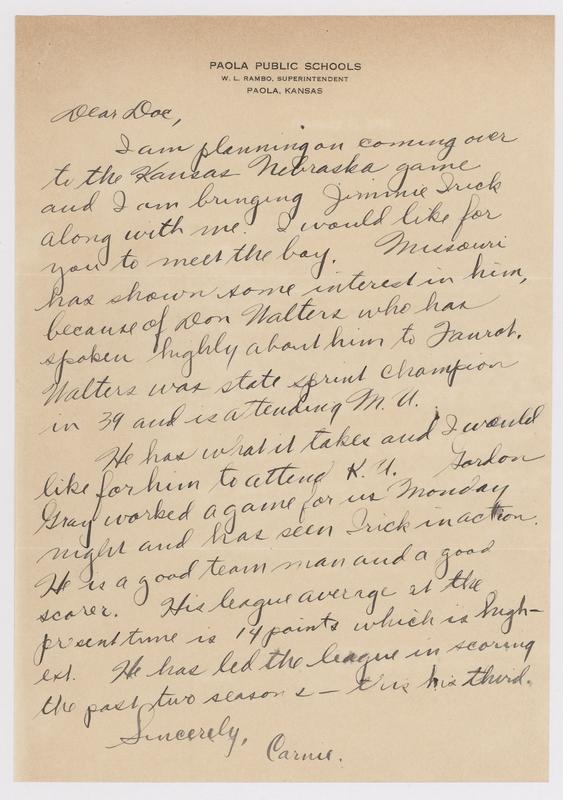 PAOLA PUBLIC SCHOOLS
W. L. RAMBO, SUPERINTENDENT
PAOLA, KANSAS
Dear Doc,
I am planning on coming over
to the Kansas Nebraska game
and I am bringing Jimmie Trick
along with me. I would like for
you to meet the boy. Missouri
has shown some interest in him,
because of Don Walters who has
spoken highly about him to Faurot.
Walters was state sprint champion
in 39 and is attending M. U.
He has what it takes and I would
like for him to attend K. U. Gordon
Gray worked a game for us Monday
night and has seen Trick in action.
He is a good team man and a good
scorer. His league average at the
present time is 14 points which is high-
est. He has led the league in scoring
the past two seasons – this his third.
Sincerely,
Carnie.